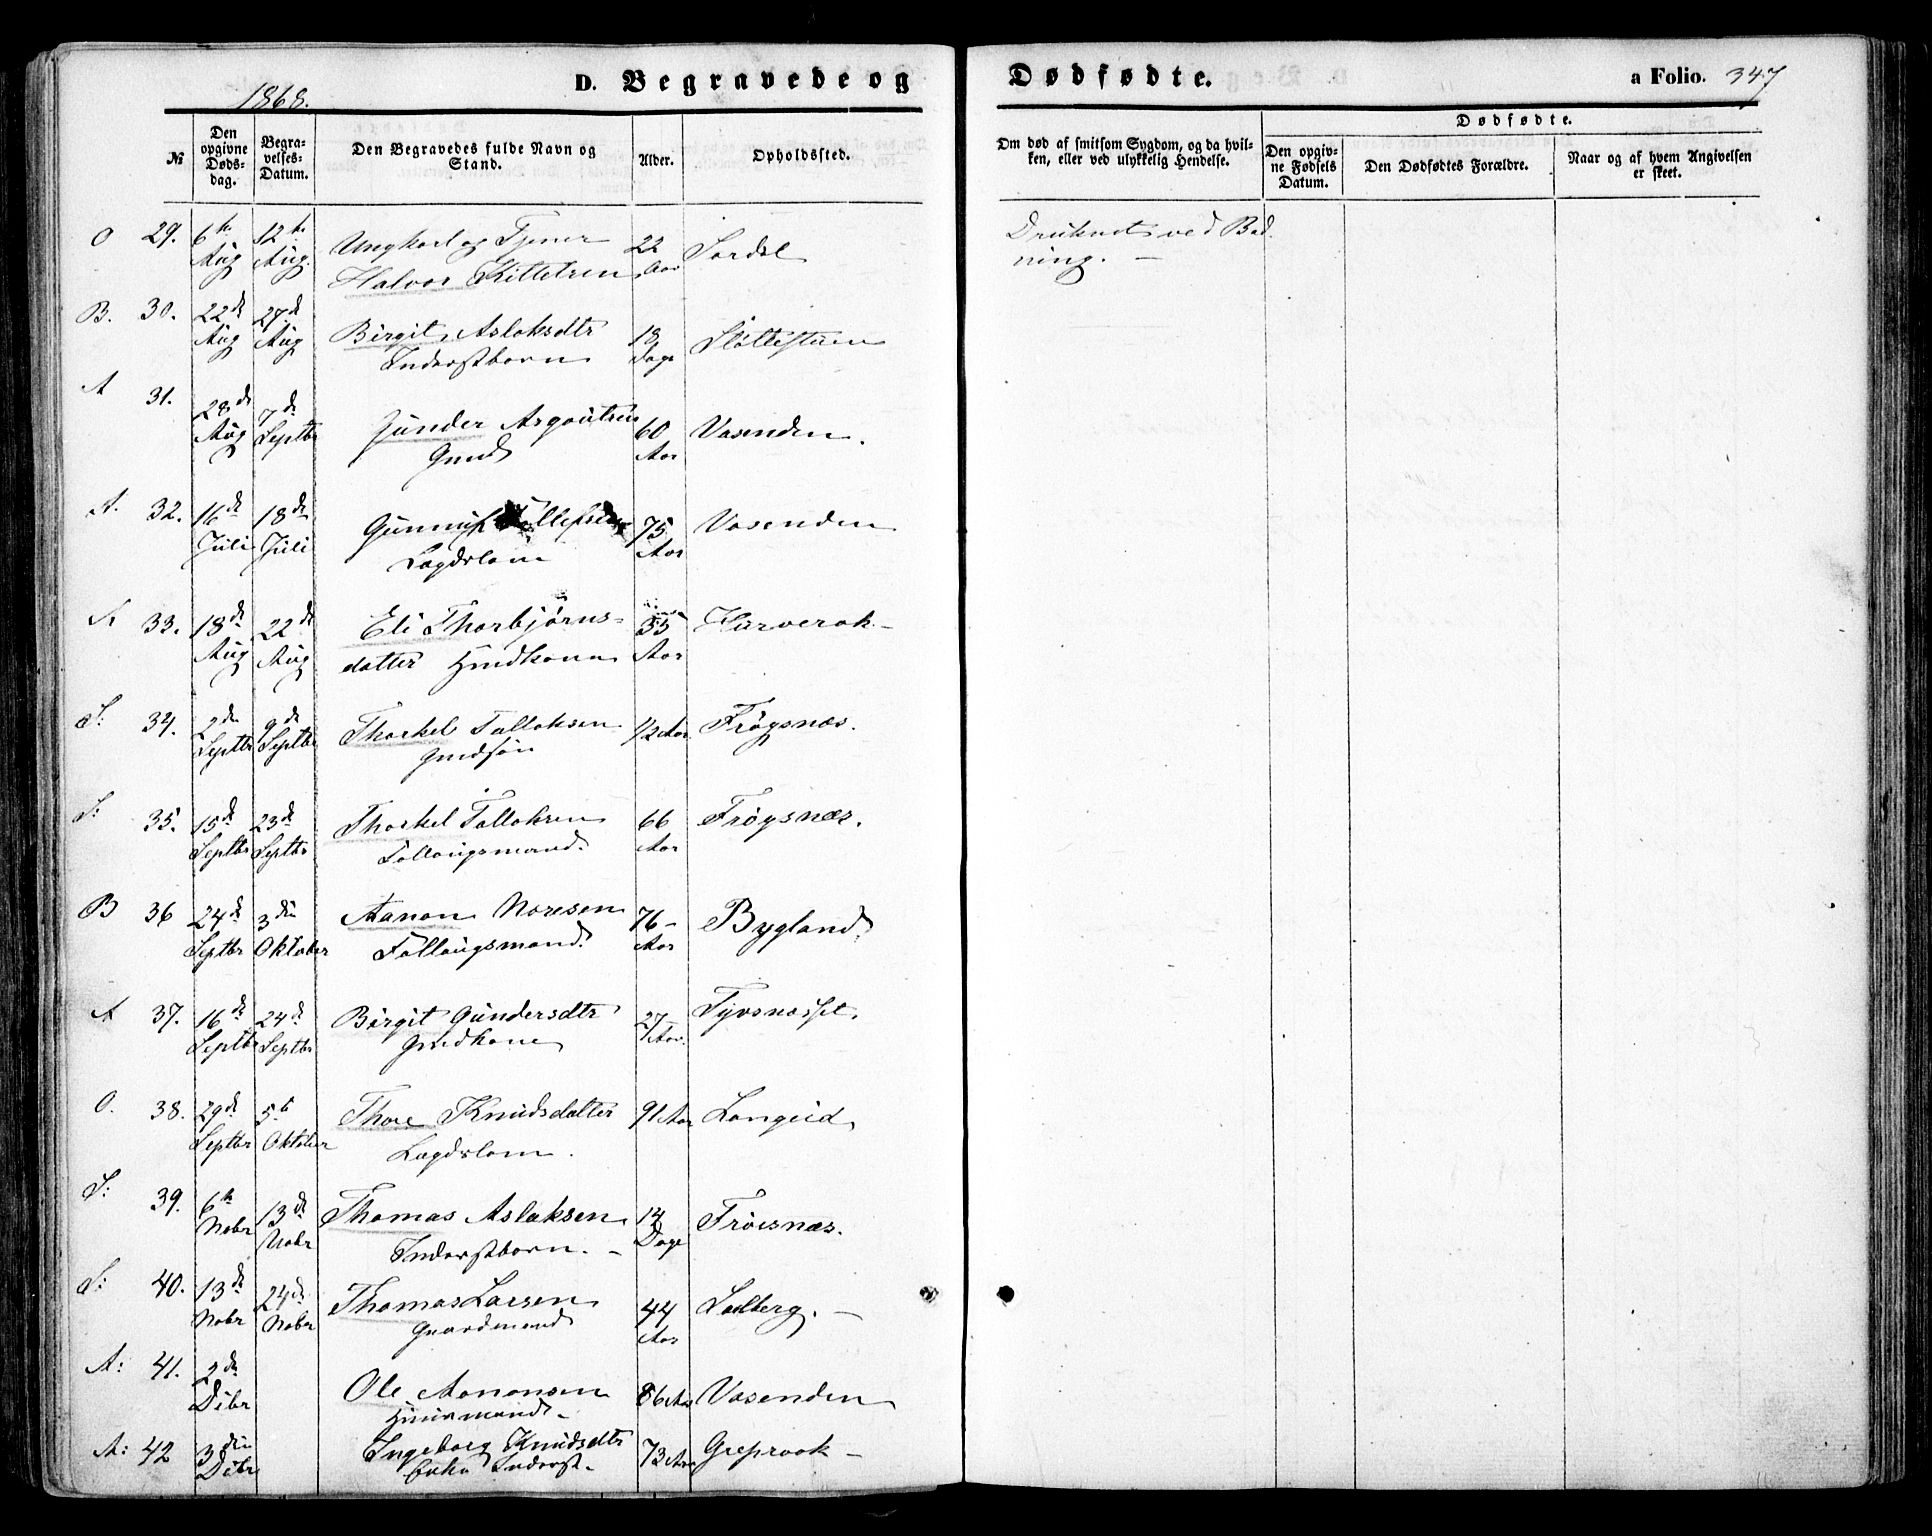 1868.
D. Begravede og
Dødfødte.
a Folio. 347
№
Den opgivne Døds-dag.
Begra-velses-Datum.
Den Begravedes fulde Navn og Stand.
Alder.
Opholdssted.
Om død af smitsom Sygdom, og da hvil-ken, eller ved ulykkelig Hendelse.
Dødfødte.
Den opgiv-ne Fødsels Datum.
Den Dødfødtes Forældre.
Naar og af hvem Angivelsen er skeet.
O 29. 6te 12te Ungkarl og Tjener 22 Sordal Druknet ved Bad-
Aug Aug. Halvor Kittelsen Aar ning. —
B. 30. 22de 27de Birgit Aslaksdtr 18
Aug Aug Inderstbarn Dage
A 31. 28de 7de Gunder Asgautsen 60 Vasenden.
Aug Septbr Gmd Aar
A. 32. 16de 18de 75 Vasenden
Juli Juli Lægdslem Aar
33. 18de 22de Eli Thorbjørns- 55
Aug Aug datter Aar
S: 34. 2den 9de Thorkel Tallaksen 1/2 Aar Frøysnæs.
Septbr Septbr Gmdsøn
S: 35. 15de 23de Thorkel Tallaksen 66 Frøysnæs.
Septbr Septbr Follaugsmand. Aar
B 36 24de 3die Aanon 76- Bygland
Septbr Oktober Follaugsmand. Aar
A 37. 16de 24de Birgit Gundersdtr 27 Tjvsnæsset
Septbr Septbr Gmdkone Aar.
O. 38. 29de 5te Thore Knudsdatter 91 Aar Langeid
Septbr Oktober Lægdslem.
S: 39. 6te 13de Thomas Aslaksen 14 Frøisnæs.
Nobr Nobr Inderstbarn. - Dage
S: 40. 13de 24de Thomas Larsen 44
Nobr Nobr Gaardmand Aar
A: 41. 2den Ole Aanonsen 86 Aar Vasenden
Dcbr
A: 42 3die Ingeborg Knudsdtr 73 Aar
Dcbr Enke Inderst-